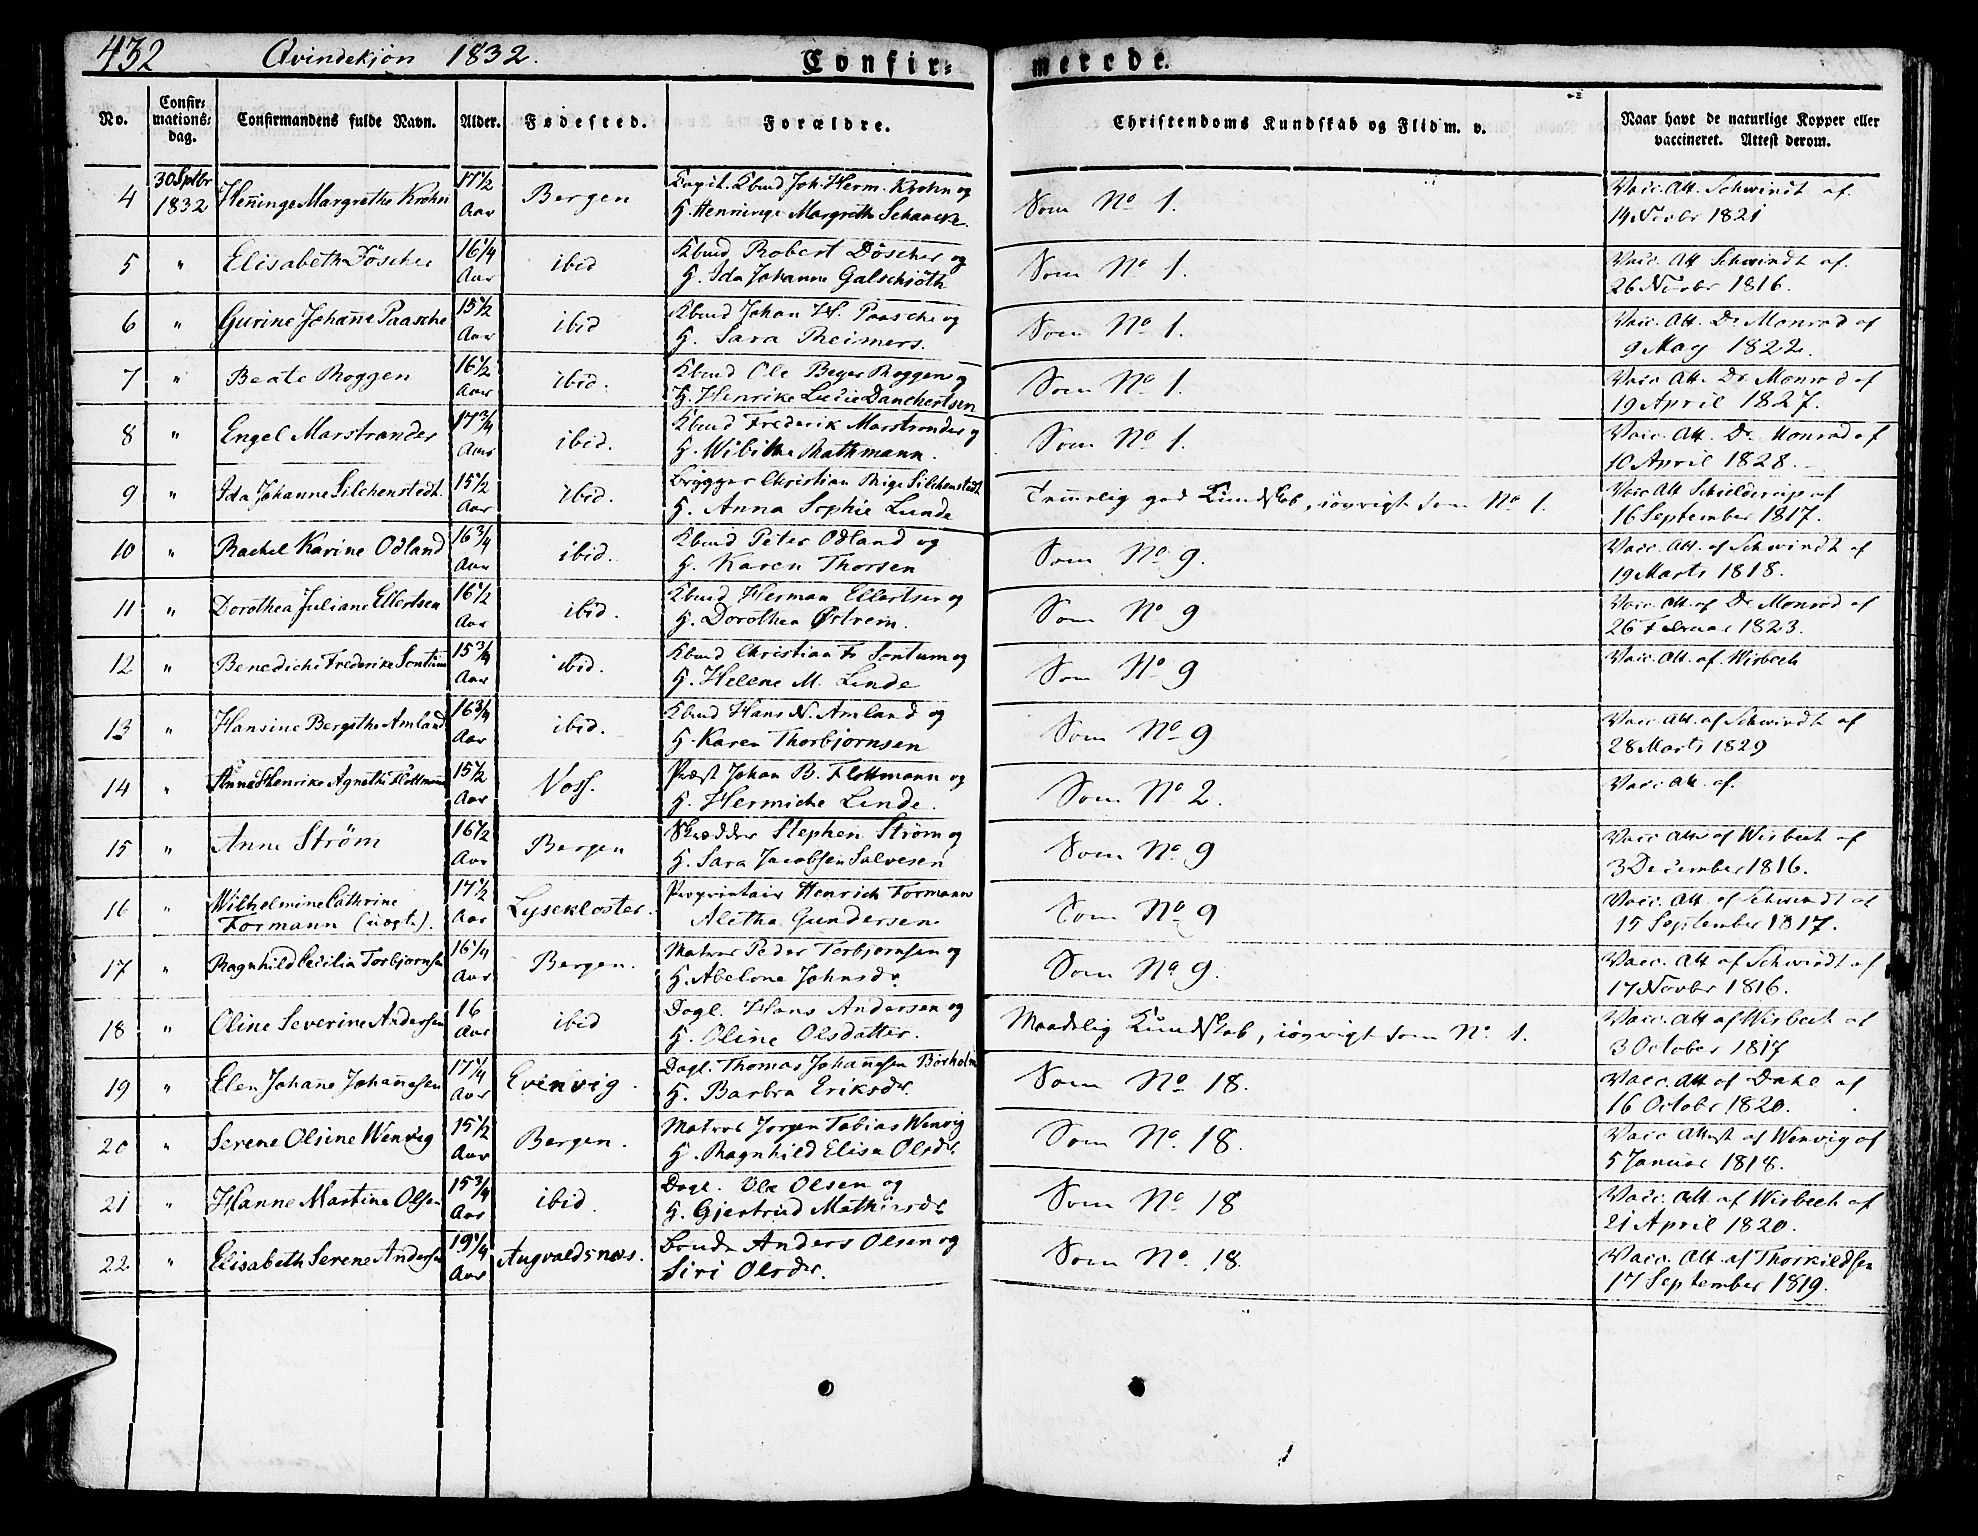 432 Qvindekjön 1832. Confir-merede.
No. Confirmationsdag. Confirmandens fulde Navn. Alder. Fødested. Forældre. Christendoms Kundskab og Flid m. v. Naar havt de naturlige Kopper eller vaccineret. Attest derom.
4 30 Sptbr 1832 Hen̄inge Margrethe Krohn 17½ Aar Bergen
Capit. Kbmd Joh. Herm. Krohn og
H. Henninge Margreth
Som No 1.
Vacc. Att. Schwindt af
14 Novbr 1821
5 " Elisabeth Döscher 16¼ Aar ibid
Kbmd Robert Döscher og
H. Ida Johanne Galschjöth
Som No 1.
Vacc. Att Schwindt af
26 Novbr 1816.
6 " Gurine Johan̄e Paasche 15½ Aar ibid
Kbmd Johan H. Paasche og
H. Sara Reimers.
Som No 1.
Vacc. Att. Dr Monrad af
9 May 1822.
7 " Beate Roggen 16½ Aar ibid.
Kbmd Ole Beyer Roggen og
H. Henrike Lucie Danchertsen
Som No 1.
Vacc Att. Dr. Monrad af
19 April 1827.
8 " Engel Marstrander 17¾ Aar ibid.
Kbmd Frederik Marstrander og
H. Wibikke Rathmann.
Som No 1.
Vacc. Att. Dr. Monrad af
10 April 1828.
9 " Ida Johanne Silchenstedt 15½ Aar ibid.
Brygger Christian Rige Silchenstedt
H. Anna Sophie Lunde
Temmelig god Kundskab, iøvrigt som No 1.
Vacc Att af
16 September 1817.
10 " Rachel Karine Odland 16¾ Aar ibid.
Kbmd Peter Odland og
H. Karen Thorsen
Som No 9.
Vacc. Att. af Schwindt af
19 Marts 1818.
11 " Dorothea Juliane Ellertsen 16½ Aar ibid.
Kbmd Herman Ellertsen og
H. Dorothea Østrem.
Som No 9
Vacc. Att. af Dr Monrad af
26 Februar 1823.
12 " Benedicte Frederike Sontum 15¾ Aar ibid.
Kbmd Christian Fr Sontum og
H. Helene M. Linde
Som No 9
Vacc. Att. af. Wisbech
13 " Hansine Bergithe Amland 16¾ Aar ibid.
Kbmd Hans N. Amland og
H. Karen Thorbjornsen
Som No 9
Vacc. Att. af Schwindt af
28 Marts 1829
14 " Anna Henrike Agnethe Flottmann 15½ Aar Voss.
Præst Johan B. Flottmann og
H. Hermiche Linde.
Som No 2.
Vacc Att. af.
15 " Anne Ström 16½ Aar Bergen
Skrædder Stephen Ström og
H. Sara Jacobsen Salvesen
Som No 9
Vacc Att. af Wisbech af
3 December 1816.
16 " Wilhelmine Cathrine
Formann (uægt.). 17½ Aar Lysekloster.
Proprietair Henrich Formann
Alitha Gundersen
Som No 9
Vacc. Att. af Schwindt af
15 September 1817.
17 " Ragnhild Cecilia Torbjornsen 16¼ Aar Bergen.
Matros Peder Torbjornsen og
H. Abelone Johnsdr
Som No 9.
Vacc. Att af Schwindt af
17 Novbr 1816.
18 " Oline Severine Andersen 16 Aar ibid
Dagl. Hans Andersen og
H. Oline Olsdatter.
Maadelig Kundskab, iøvrigt som No 1.
Vacc. Att af Wisbech af
3 October 1817
19 " Elen Johan̄e Johan̄esen 17¼ Aar Evinvig.
Dagl. Thomas Johan̄esen Borholm
H. Barbra Eriksdr.
Som No 18.
Vacc. Att af Dahl af
16 Octobr 1820.
20 " Serene Olsine Wenvig 15½ Aar Bergen.
Matros Jorgen Tobias Wenvig
H. Ragnhild Elisa Olsdr.
Som No. 18.
Vacc Attest af Wenvig af
5 Januar 1818.
21 " Hanne Martine Olsen 15¾ Aar ibid.
Dagl. Ole Olsen og
H. Gjertrud
Som No 18
Vacc. Att af Wisbech af
21 April 1820.
22 " Elisabeth Serene Andersen 19¼ Aar Augvaldsnæs.
Bonde Anders Olsen og
Siri Olsdr.
Som No. 18.
Vacc. Att. af Thorkildsen
17 September 1819.